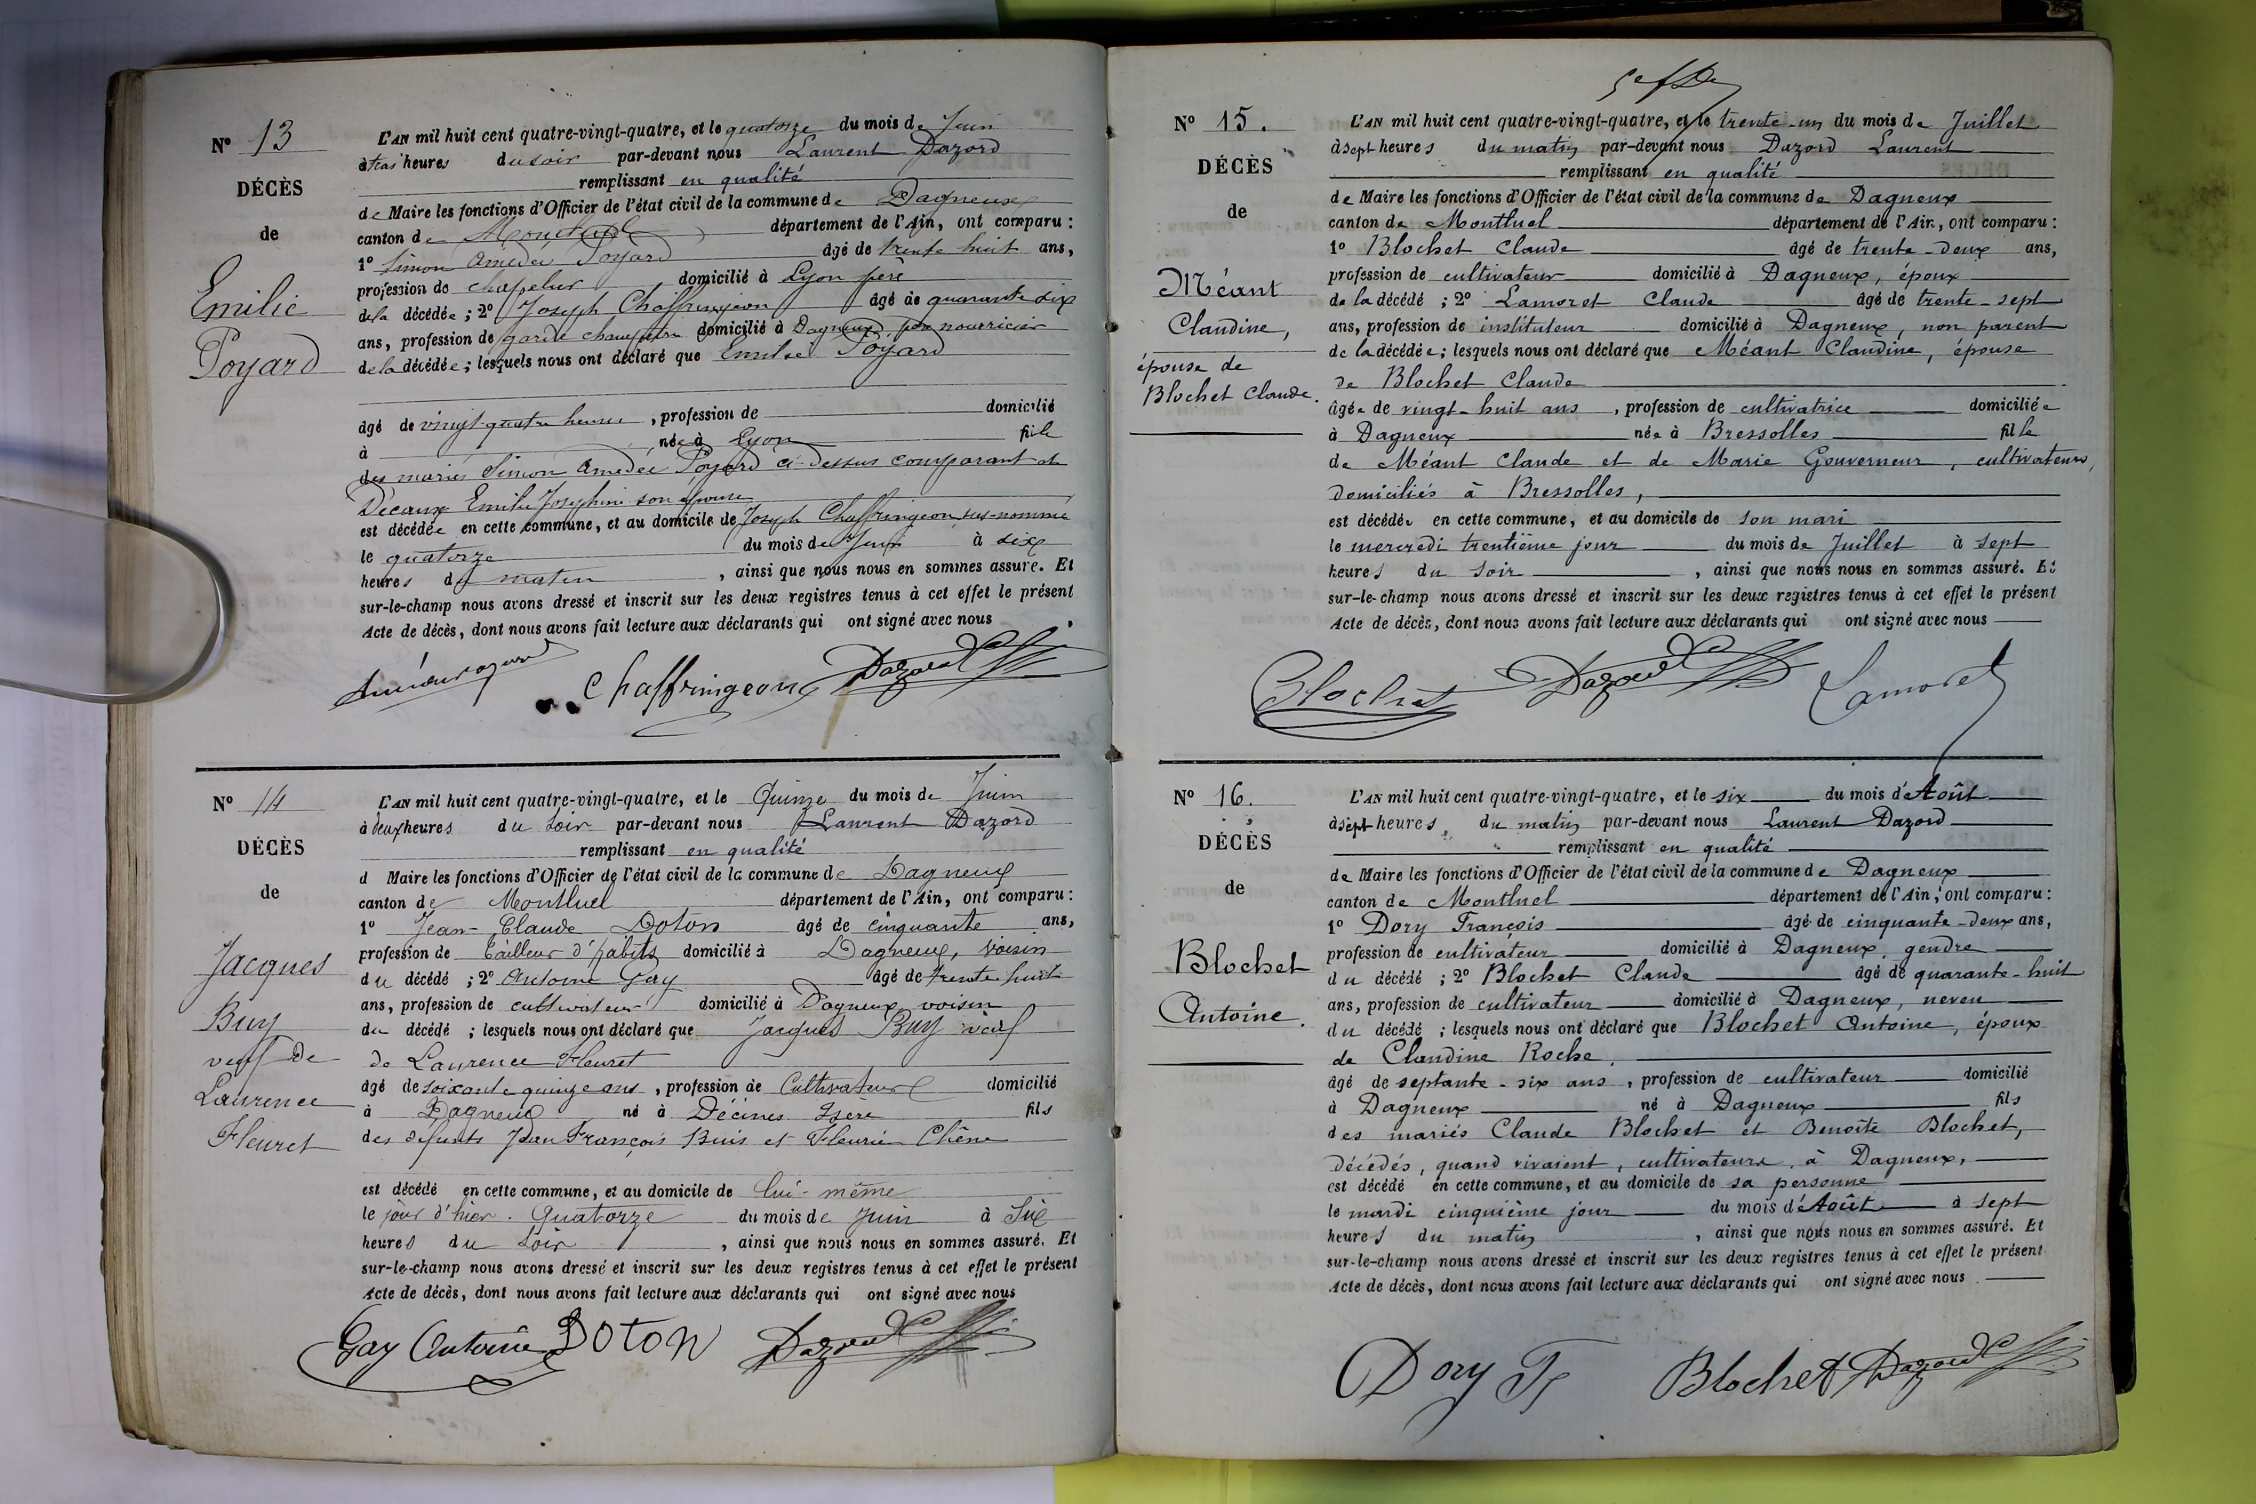 Nº 13
DÉCÈS
de
Emilie
Poyard
L'AN mil huit cent quatre-vingt-quatre, et le quatorze du mois de Juin
à trois heures du soir par-devant nous Laurent Dazord
remplissant en qualité
de Maire les fonctions d'Officier de l'état civil de la commune de Dagneux
canton de Montluel département de l'Ain, ont comparu :
1º Simon Amédée Poyard âgé de trente huit ans,
profession de chapelier domicilié à Lyon père
de la décédée ; 2º Joseph Chaffringeon âgé de quarante six
ans, profession de garde champêtre domicilié à Dagneux, père nourricier
de la décédée ; lesquels nous ont déclaré que Emilie Poyard
âgé de vingt quatre heures , profession de domicilié
à née à Lyon fille
des mariés Simon Amédée Poyard ci-dessus comparant et
Décaux Emilie Joséphine son épouse
est décédée en cette commune, et au domicile de Joseph Chaffringeon sus-nommé
le quatorze du mois de Juin à six
heures du matin , ainsi que nous nous en sommes assuré. Et
sur-le-champ nous avons dressé et inscrit sur les deux registres tenus à cet effet le présent
Acte de décès, dont nous avons fait lecture aux déclarants qui ont signé avec nous .
Chaffringeon Dazord
Nº 14
DÉCÈS
de
Jacques
Buy
veuf de
Laurence
Fleuret
L'AN mil huit cent quatre-vingt-quatre, et le Quinze du mois de Juin
à deux heures du soir par-devant nous Laurent Dazord
remplissant en qualité
d Maire les fonctions d'Officier de l'état civil de la commune de Dagneux
canton de Montluel département de l'Ain, ont comparu :
1º Jean-Claude Doton âgé de cinquante ans,
profession de Tailleur d'habits domicilié à Dagneux, voisin
du décédé ; 2º Antoine Gay âgé de trente huit
ans, profession de cultivateur domicilié à Dagneux voisin
du décédé ; lesquels nous ont déclaré que Jacques Buy veuf
de Laurence Fleuret
âgé de soixante quinze ans , profession de Cultivateur domicilié
à Dagneux né à Décines Isère fils
des défunts Jean François Buis et Fleurie Chêne
est décédé en cette commune, et au domicile de lui-même
le jour d'hier. Quatorze du mois de Juin à Six
heures du soir , ainsi que nous nous en sommes assuré. Et
sur-le-champ nous avons dressé et inscrit sur les deux registres tenus à cet effet le présent
Acte de décès, dont nous avons fait lecture aux déclarants qui ont signé avec nous
Gay Antoine DOTON Dazord
Nº 15.
DÉCÈS
de
Méant
Claudine,
épouse de
Blochet Claude.
L'AN mil huit cent quatre-vingt-quatre, et le trente-un du mois de Juillet
à sept heures du matin par-devant nous Dazord Laurent
remplissant en qualité
de Maire les fonctions d'Officier de l'état civil de la commune de Dagneux
canton de Montluel département de l'Ain, ont comparu :
1º Blochet Claude âgé de trente-deux ans,
profession de cultivateur domicilié à Dagneux, époux
de la décédé ; 2º Lamoret Claude âgé de trente-sept
ans, profession de instituteur domicilié à Dagneux, non parent
de la décédée ; lesquels nous ont déclaré que Méant Claudine, épouse
de Blochet Claude
âgée de vingt-huit ans , profession de cultivatrice domiciliée
à Dagneux née à Bressolles fille
de Méant Claude et de Marie Gouverneur, cultivateurs,
domiciliés à Bressolles,
est décédée en cette commune, et au domicile de son mari
le mercredi trentième jour du mois de Juillet à sept
heures du soir , ainsi que nous nous en sommes assuré. Et
sur-le-champ nous avons dressé et inscrit sur les deux registres tenus à cet effet le présent
Acte de décès, dont nous avons fait lecture aux déclarants qui ont signé avec nous
Blochet Dazord Lamoret
Nº 16.
DÉCÈS
de
Blochet
Antoine.
L'AN mil huit cent quatre-vingt-quatre, et le six du mois d'Août
à sept heures du matin par-devant nous Laurent Dazord
remplissant en qualité
de Maire les fonctions d'Officier de l'état civil de la commune de Dagneux
canton de Montluel département de l'Ain, ont comparu :
1º Dory François âgé de cinquante-deux ans,
profession de cultivateur domicilié à Dagneux, gendre
du décédé ; 2º Blochet Claude âgé de quarante-huit
ans, profession de cultivateur domicilié à Dagneux, neveu
du décédé ; lesquels nous ont déclaré que Blochet Antoine, époux
de Claudine Roche.
âgé de septante-six ans , profession de cultivateur domicilié
à Dagneux né à Dagneux fils
des mariés Claude Blochet et Benoîte Blochet,
décédés, quand vivaient, cultivateurs, à Dagneux,
est décédé en cette commune, et au domicile de sa personne
le mardi cinquième jour du mois d'Août à sept
heures du matin , ainsi que nous nous en sommes assuré. Et
sur-le-champ nous avons dressé et inscrit sur les deux registres tenus à cet effet le présent
Acte de décès, dont nous avons fait lecture aux déclarants qui ont signé avec nous .
Dory F Blochet Dazord